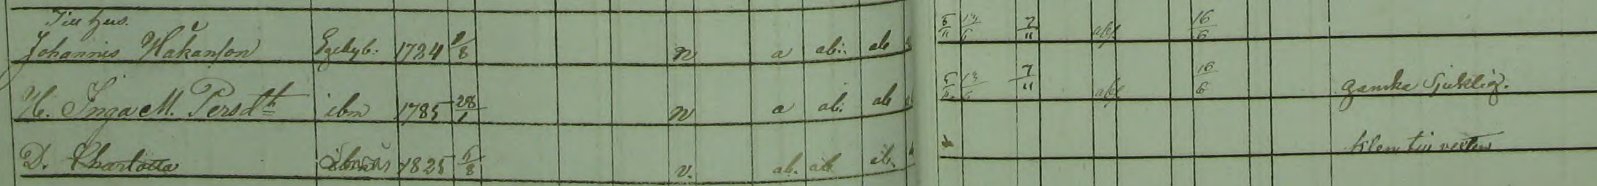 Till hus.
Johannis Håkanson 1784 1/8 n a ab: ab 5/11 13/6 7/11 abs 16/6
H. Inga M. Persdtr ibm 1785 28/1 n a ab: ab 13/6 7/11 abs 16/6 ganska Sjuklig.
D. Charlotta 1825 5/8 v. ab. ab ab. Klen till växten